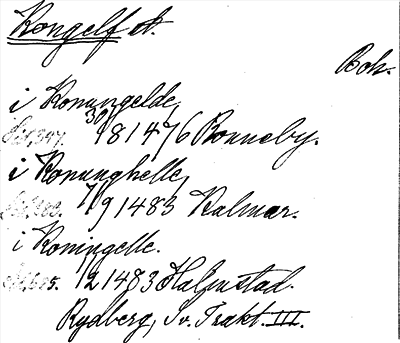 Kongelf st.
Boh.
i Konungelde,
30/8 1476 Ronneby.
i Konunghelle,
7/9 1483 Kalmar.
i Koningelle.
1/2 1483 Halmstad.
Rydberg, Sv. Trakt. III.